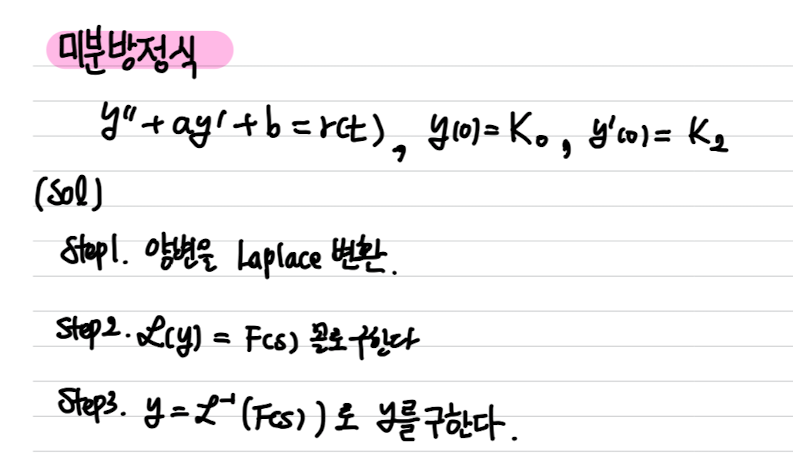 미분방정식
y'' + ay' + b = r(t), y(0) = K₀, y'(0) = K₂
(Sol)
Step1. 양변을 Laplace 변환.
Step2. ℒ(y) = F(s) 꼴로 구한다
Step3. y = ℒ⁻¹(F(s)) 로 y를 구한다.